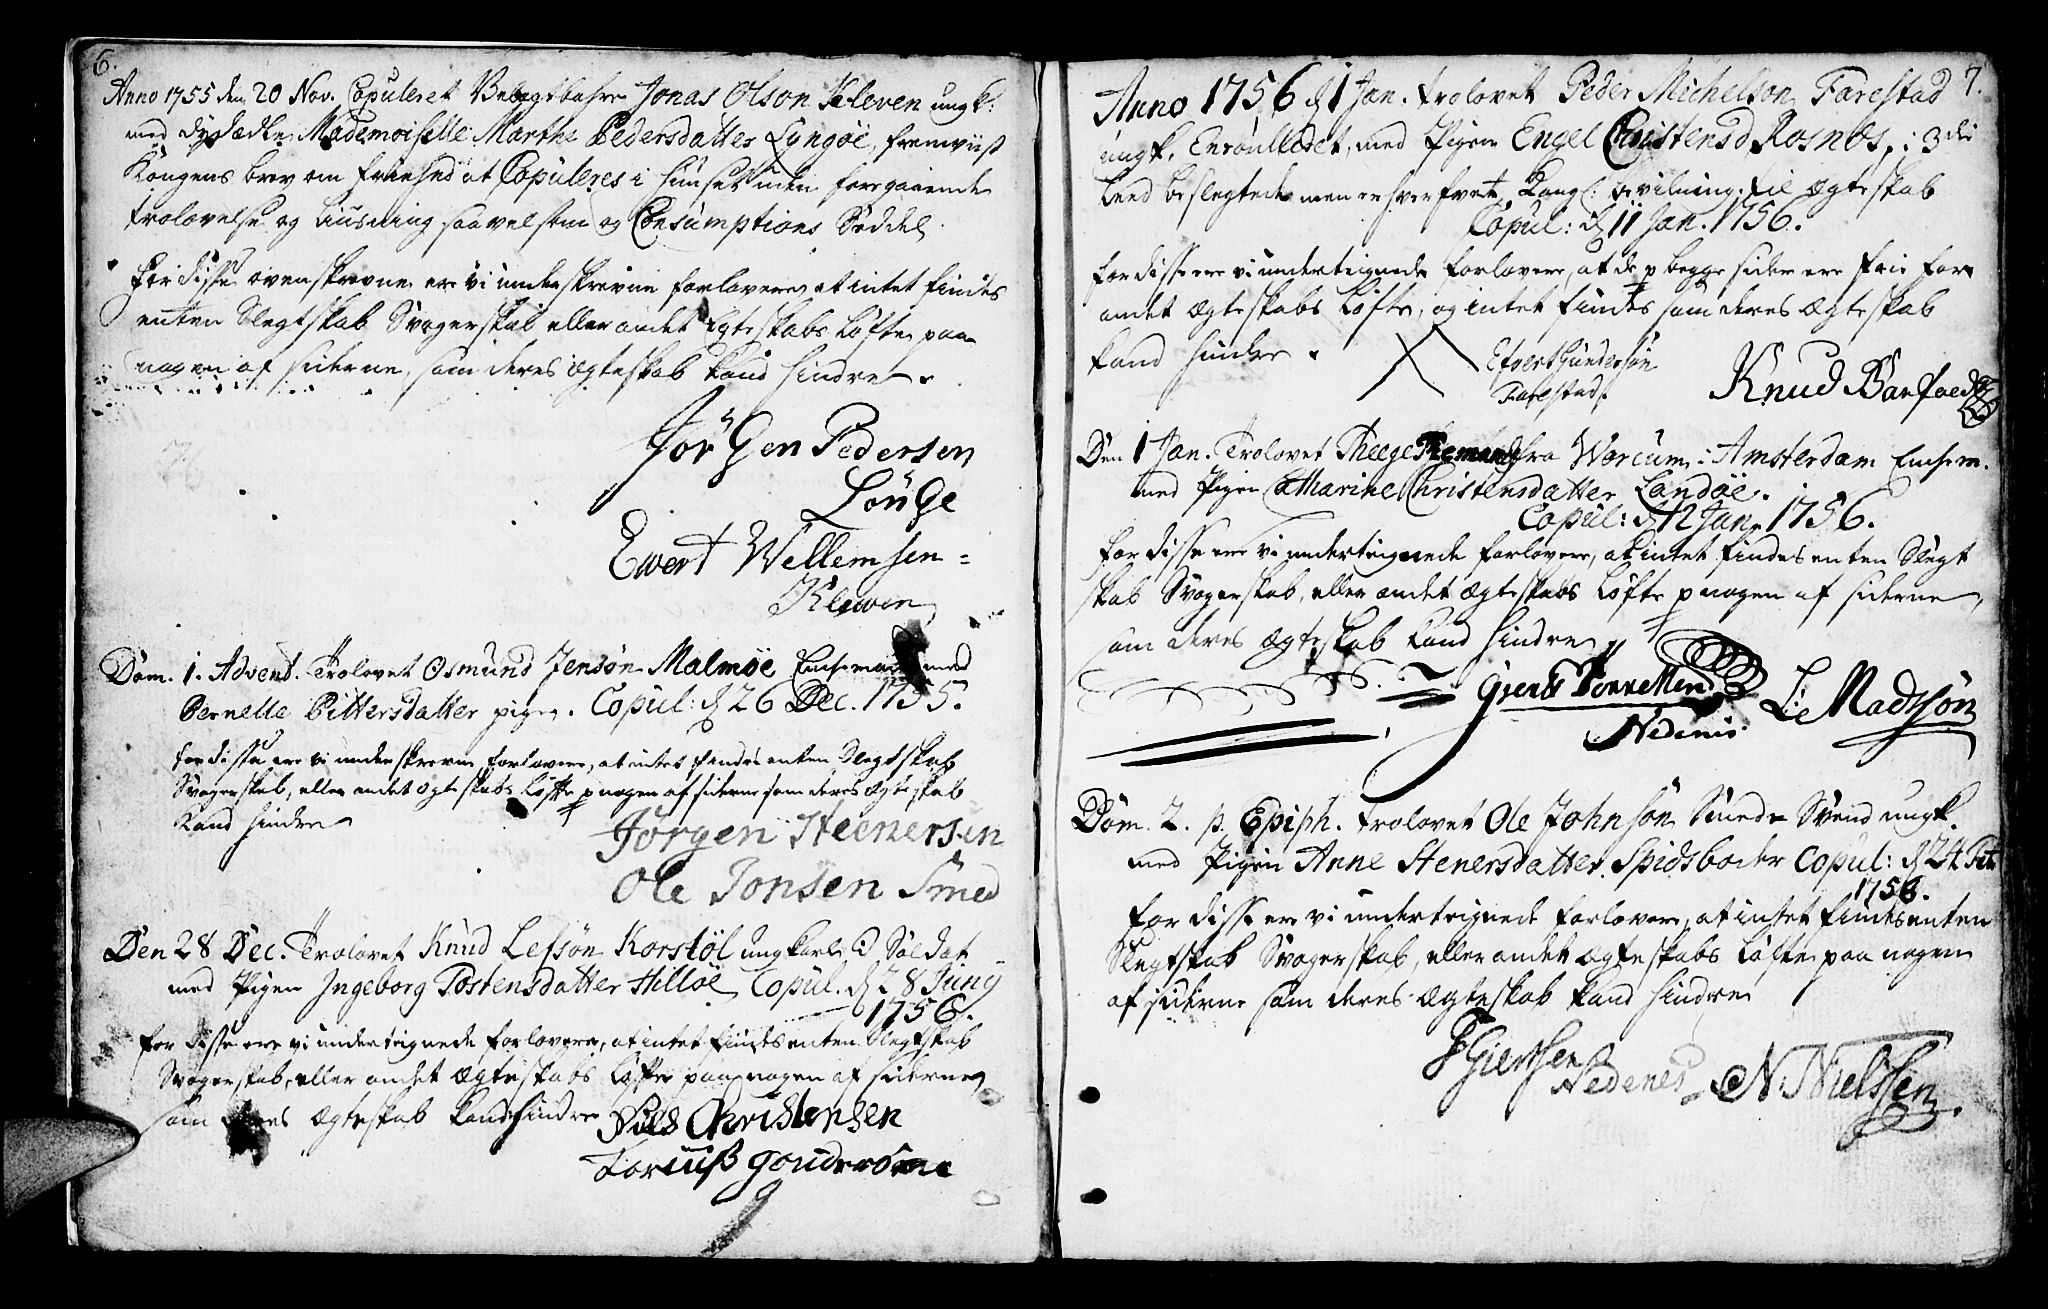 6.
Anno 1755 den 20 Nov. Copuleret Velagtbahre Jonas Olson Kleven ungk:
med dydædle Mademoiselle Marthe Pedersdatter Lyngøe, fremviist
Kongens brev om friehed at Copuleres i Huuset uden foregaaende
trolovelse og liusning saavelsom og Consumptions Seddel.
For disse ovenskrevne ere vi underskrevne forlovere at intet findes
enten Slegtskab Svogerskab eller andet Egteskabs Løfte paa
nogen af siderne, som deres ægteskab kand hindre.
Jörgen Pedersen
Lönge
Ewert Wellemsen =
Klewen
Dom. 1. Advent. Trolovet Osmund Jensøn Malmøe med
Pernelle Pittersdatter pige. Copul: d 26 Dec. 1755.
for disse ere vi underskrevne forlovere, at intet findes enten Slegtskab
Svogerskab, eller andet ægteskabs Løfte p nogen af siderne som deres ægteskab
kand hindre
Jörgen Steenersen
Ole Jonsen Smed
Den 28 Dec. Trolovet Knud Lefsøn Korstøl ungkarl Soldat
med Pigen Ingeborg Tostensdatter Hilløe Copul. d 28 Junj
1756.
for disse ere vi undertegnede forlovere, at intet findes enten Slegtskab
Svogerskab, eller andet Ægteskabs Løfte paa nogen af siderne,
som deres Ægteskab kand hindre
Niels Christensen
Goudersen
7.
Anno 1756 d 1 Jan. trolovet Peder Michelson Farestad
ungk. Enroulleret, med Pigen Engel Christensd Rosnæs, i 3die
leed beslegtede men erhvervet Kongl: bevilning til ægteskab
Copul: d 11 Jan. 1756.
for disse ere vi undertegnede forlovere, at de p begge sider ere frie for
andet Ægteskabs Løfte, og intet findes som deres Ægteskab
kand hindre.
Efvert Gundersøn
Farestad.
Knud Barfoed
Den 1 Jan. Trolovet Theege fra Worcum i Amsterdam
med Pigen Catharine Christensdatter Landøe.
Copul: d 12 Jan. 1756.
for disse ere vi undertegnede forlovere, at intet findes enten Slegt
skab Svogerskab, eller andet Ægteskabs Løfte p nogen af siderne,
som deres Ægteskab kand hindre
Nedenis.
L: Madssön
Dom. 2. p. Epiph. trolovet Ole Johnsøn Smede Svend ungk.
med Pigen Anne Stenersdatter Spidsboder Copul: d 24
1756.
for disse ere vi undertegnede forlovere, at intet findes enten
Slegtskab Svogerskab, eller andet Ægteskabs Løfte paa nogen
af siderne som deres Ægteskab kand hindre
Giertsen
Nedenes
N: Nielssen